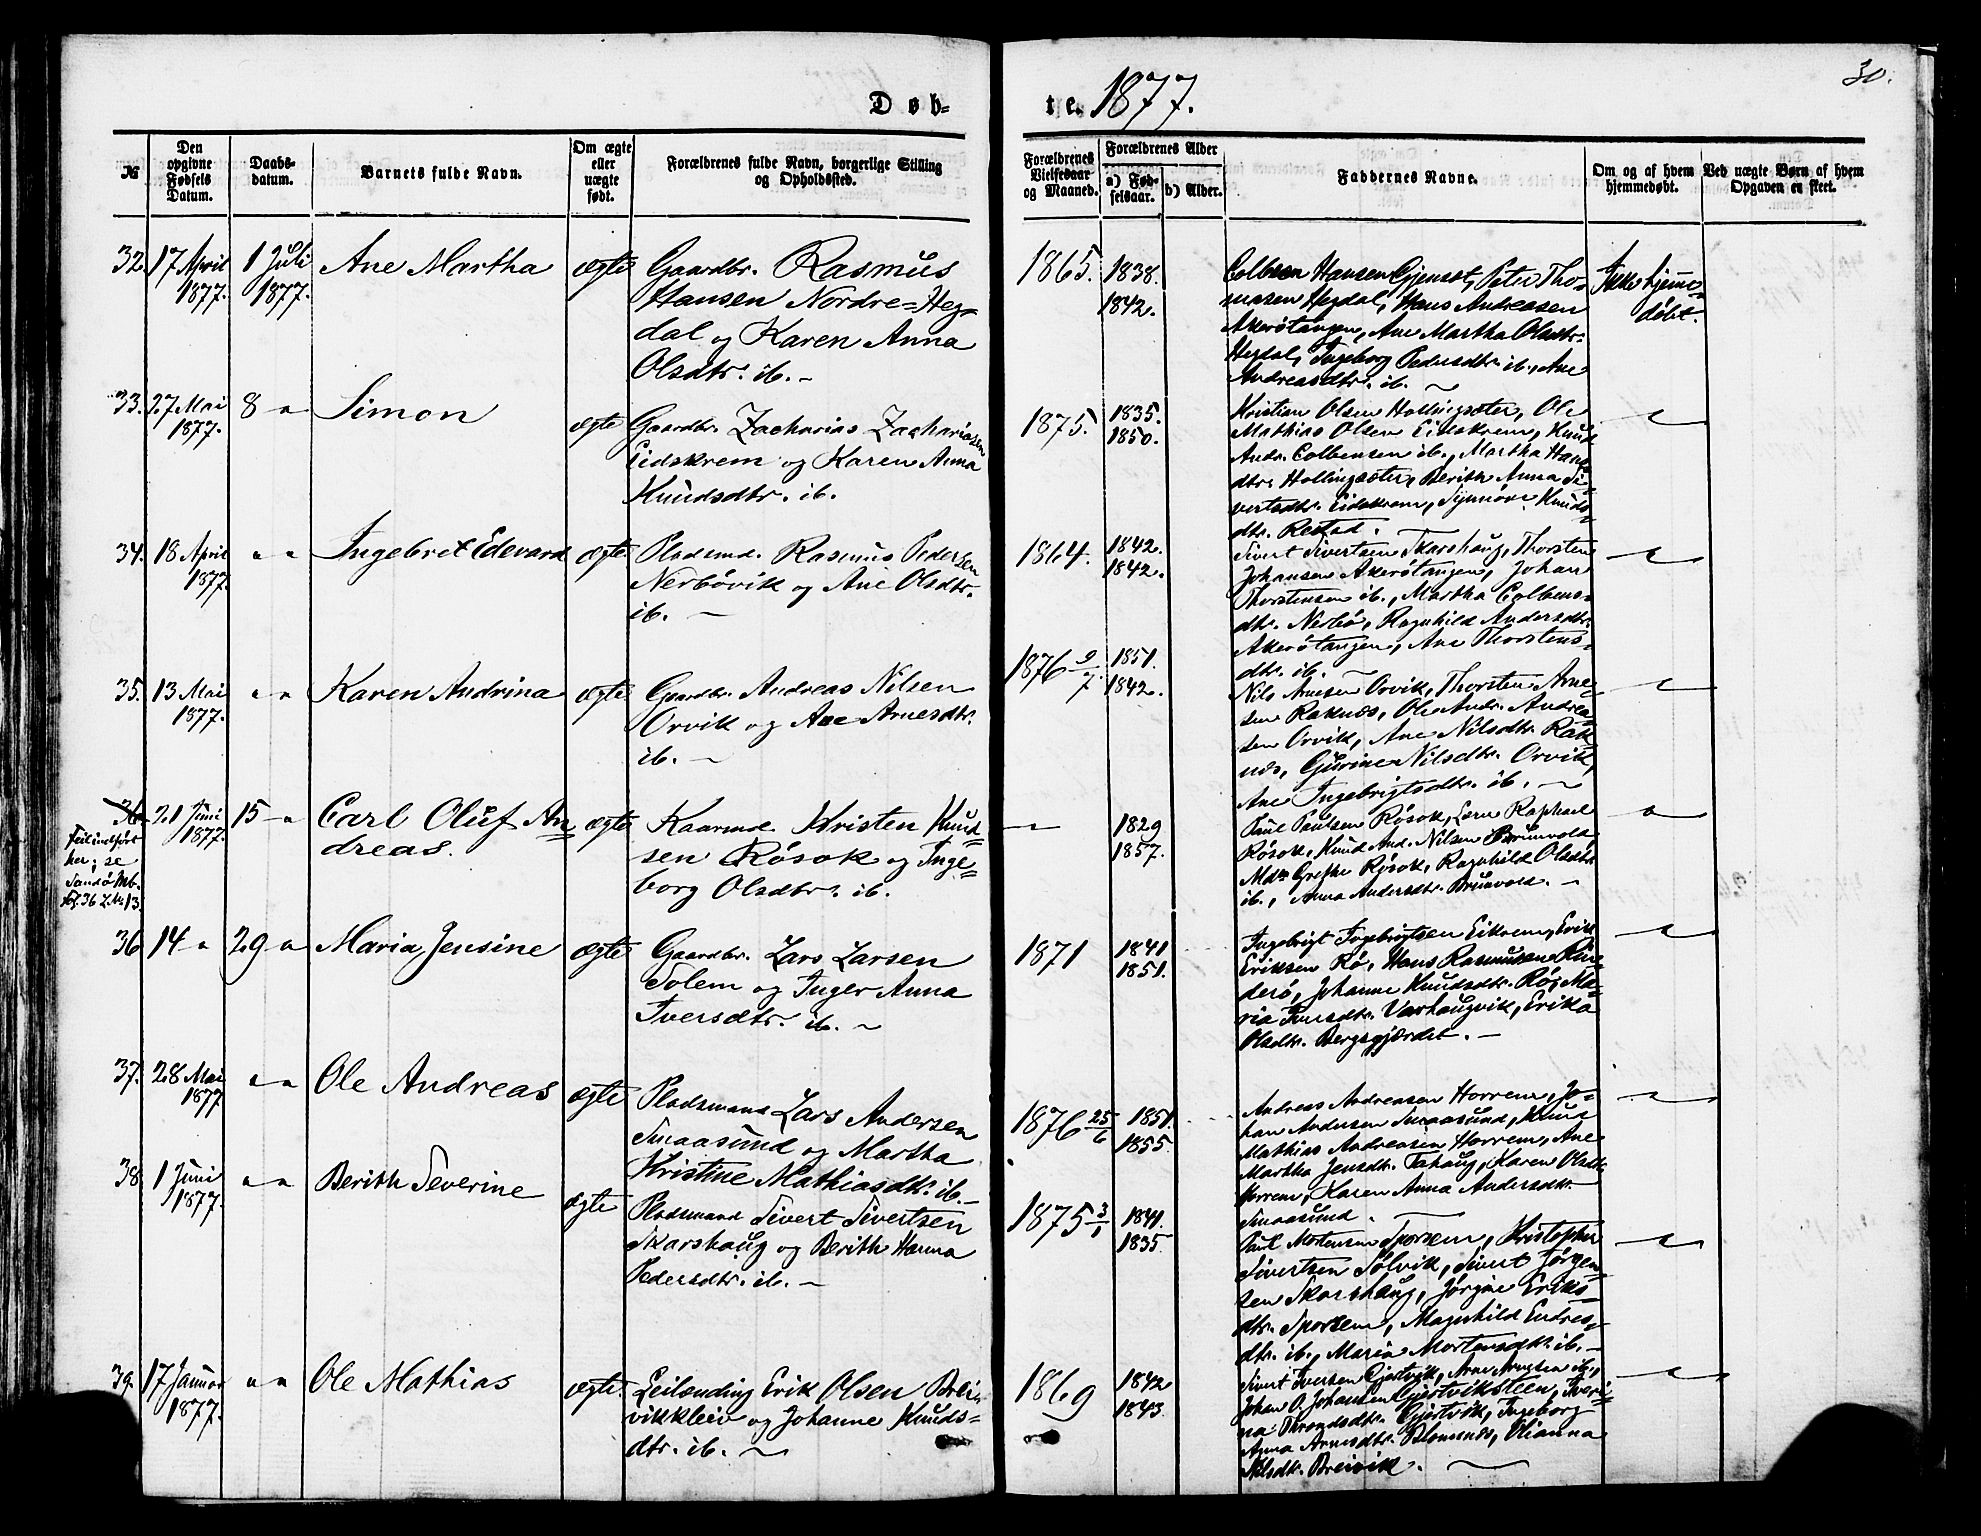 Døb-
te. 1877.
30.
№
Den opgivne Fødsels Datum.
Daabs-datum.
Barnets fulde Navn.
Om ægte eller uægte født.
Forældrenes fulde Navn, borgerlige Stilling og Opholdssted.
Forældrenes Vielsesaar og Maaned.
Forældrenes Alder
a) Fødselsaar.
b) Alder.
Faddernes Navne.
Om og af hvem hjemmedøbt.
Ved uægte Børn af hvem Opgaven er skeet.
32. 17 April 1877. 1 Juli 1877. Ane Martha ægte Gaardbr. Rasmus
Hansen Nordre=Heg=
dal og Karen Anna
Olsdtr. ib. –
1865. 1838. 1842.
Colbsen Hansen Gjemset, Peter Tho=
masen Hegdal, Hans Andreasen
Akerøtangen, Ane Martha Olsdtr.
Hegdal, Ingeborg Pedersdtr. ib., Ane
Andreasdtr. ib.
Ikke hjemme=
døbt.
33. 27 Mai 1877. 8 " Simon ægte Gaardbr. Zacharias Zachariassen
Eidskrem og Karen Anna
Knudsdtr. ib.
1875. 1835. 1850.
Kristian Olsen Hollingsæter, Ole
Mathias Olsen Eidskrem, Knud
Andr. Colbensen ib., Martha Hans=
dtr. Hollingsæter, Berith Anna Si=
vertsdtr. Eidskrem, Synnøve Knuds=
dtr. Restad.
34. 18 April 1877. " " Ingebret Edevard ægte Pladsmd. Rasmus Pedersen
Nerbøvik og Ane Olsdtr.
ib. –
1864. 1842. 1842.
Sivert Sivertsen Skarshaug, Thorsten
Johansen Akerøtangen, Johan
Thorstensen ib., Martha Colbens=
dtr. Nerbø, Ragnhild Andersdtr.
Akerøtangen, Ane Thorstens=
dtr. ib.
35. 13 Mai 1877. " " Karen Andrina ægte Gaardbr. Andreas Nilsen
Orvik og Ane Arnesdtr.
ib. –
1876 9/7. 1851. 1842.
Nils Arnesen Orvik, Thorsten Arne=
sen Raknæs, Ole Andr. Andrea=
sen Orvik, Ane Nilsdtr. Rak
næs, Gurine Nilsdtr. Orvik,
Ane Ingebrigtsdtr. ib. –
36. 21 Juni 1877. 15 " Carl Oluf An=
dreas. ægte Kaarmd. Kristen Knud=
sen Røsok og Inge=
borg Olsdtr. ib.
Feilindført
her; se
Sandø Mb.
Fol. 36 L. No. 13.
— 1829 1857.
Paul Paulsen Røsok, Lars Raphael
Røsok, Knud And. Nilsen Brunvold
Mdm Grethe Røsok, Ragnhild Olsdtr.
ib., Anna Andersdtr. Brunvold. –
36 14 " 29 " Maria Jensine ægte Gaardbr. Lars Larsen
Solem og Inger Anna
Iversdtr. ib. –
1871 1841 1851.
Ingebrigt Ingebrigtsen Eikrem, Erik
Eriksen Rø, Hans Rasmussen Rin=
derø, Johanne Knudsdtr. Rø, Ma=
ria Iversdtr. Varhaugvik, Erika
Olsdtr. Bergsgjærdet. –
37. 28 Mai 1877 " " Ole Andreas ægte Pladsmand Lars Andersen
Smaasund og Martha
Kristine Mathiasdtr. ib. –
1876 25/6 1851. 1855.
Andreas Andreasen Horrem, Jo=
han Andersen Smaasund, Knud
Mathias Andreasen Horrem, Ane
Martha Jensdtr. Tahaug, Karen Olsdtr.
Horrem, Karen Anna Andersdtr.
Smaasund.
38. 1 Juni 1877. " " Berith Severine ægte Pladsmand Sivert Sivertsen
Skarshaug og Berith Hanna
Pedersdtr. ib. –
1875 3/1 1841. 1835.
Paul Mortensen Sporsem, Kristopher
Sivertsen Solvik, Sivert Jørgen=
sen Skarshaug, Jørgine Eriks=
dtr. Sporsem, Magnhild Endres=
dtr. ib., Maria Mortensdtr. ib. –
39. 17 Januar 1877. " " Ole Mathias ægte. Leilænding Erik Olsen Brei=
vikkleiv og Johanne Knuds=
dtr. ib. –
1869 1842 1843.
Sivert Iversen Gjertvik, Arne Arnesen ib.,
Johan O. Johansen Gjertviksteen, Iveri=
na Throndsdtr. Gjertvik, Ingeborg
Anna Arnesdtr. Blomsnæs, Olianna
Nilsdtr. Breivik.